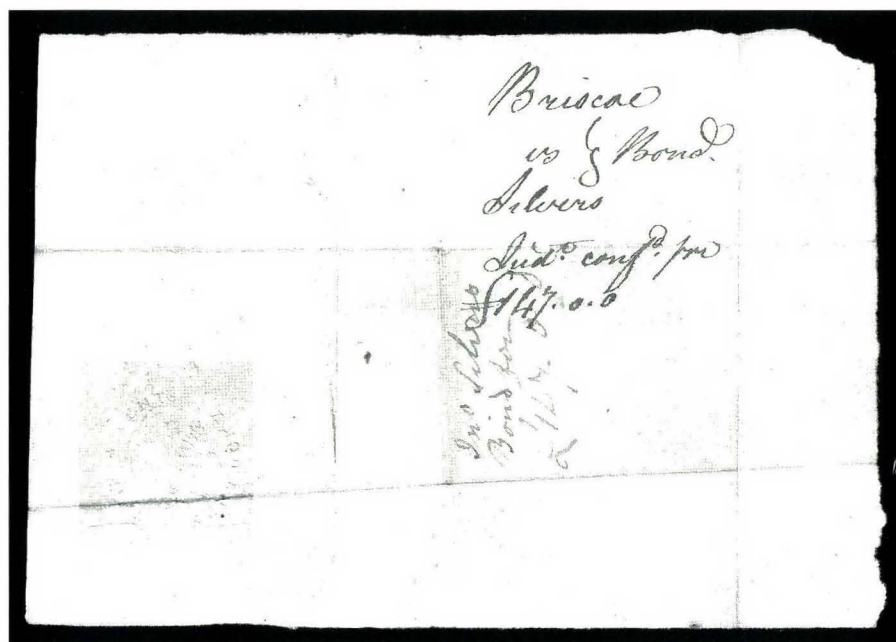 Briscoe
vs } Bond.
Silvers
Judt. confd. for
£147.0.0
Jno Silvers
Bond for
£147.0.0